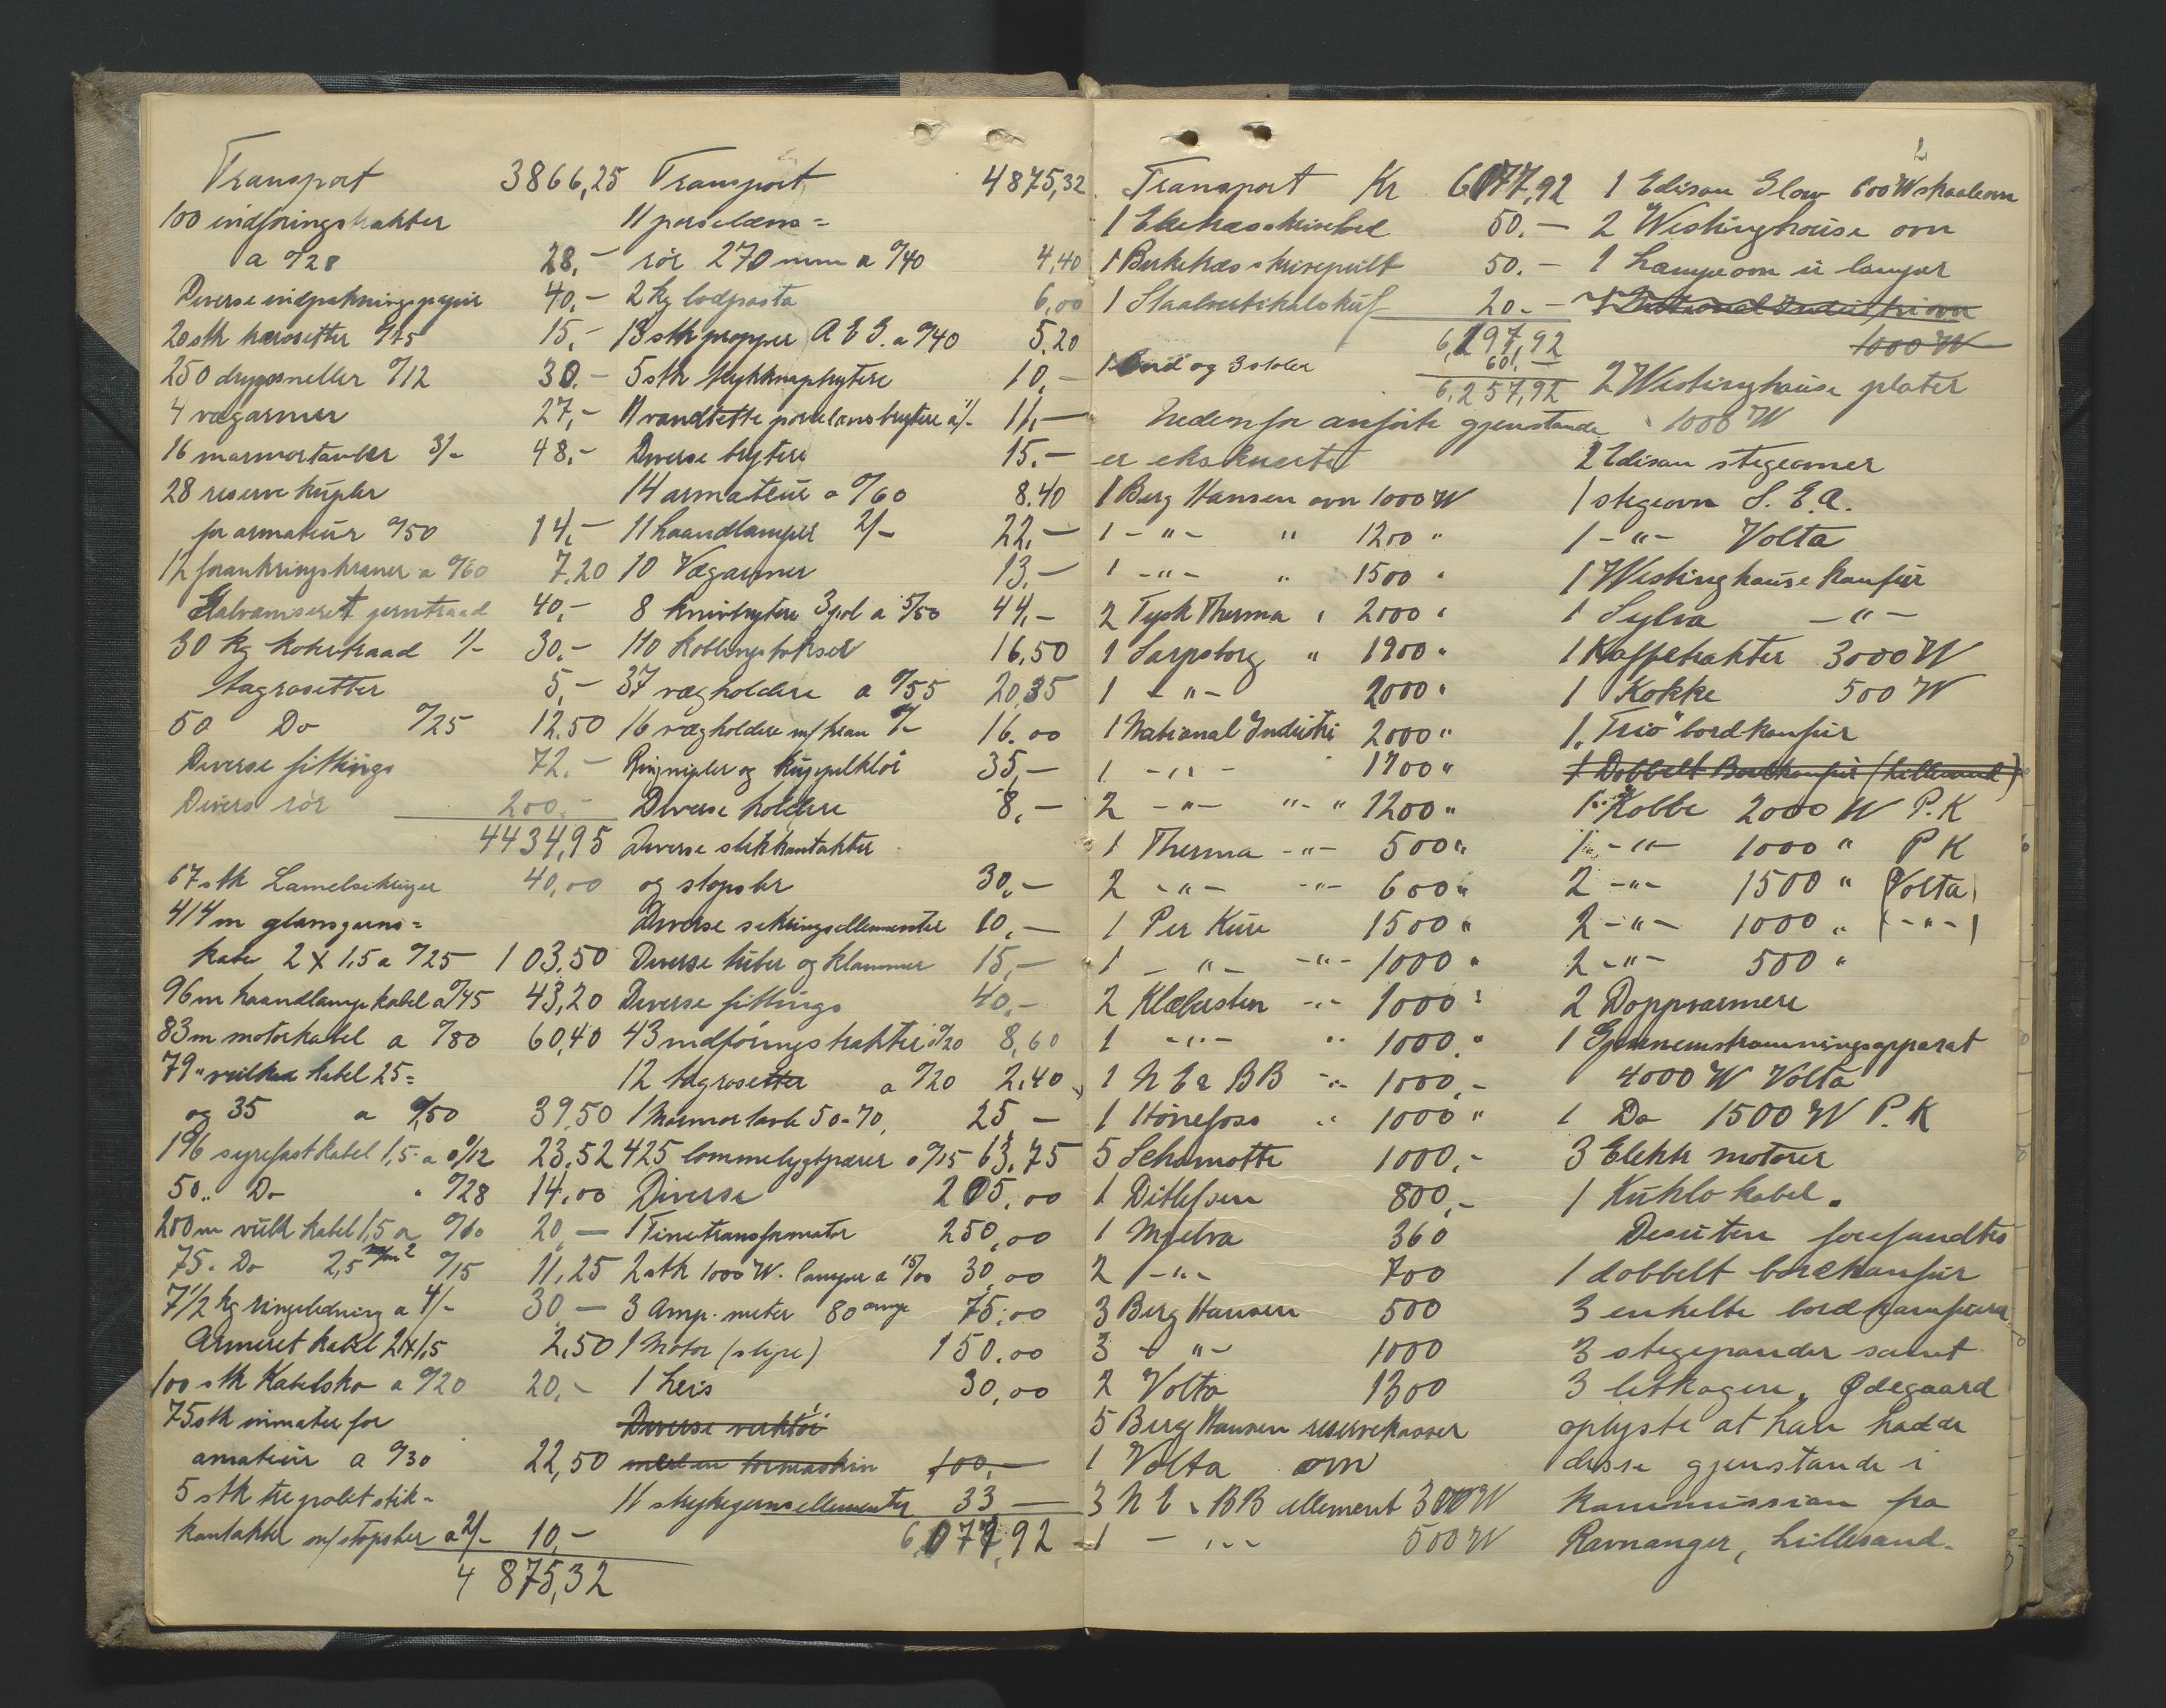 Transport 3866,25
100 indføringstrakter
a 0/28 28,-
Diverse indpakningspapir 40,-
20 stk rosetter 0/75 15,-
250 drypsneller 0/12 30.-
4 vægarmer 27,-
16 marmortavler 3/- 48,-
28 reserve kupler
for armatur 0/50 14,-
12 forankringskraner a 0/60 7,20
Galvaniseret jerntraad 40,-
30 kg kokstraad 1/- 30,-
Tagrosetter 5,-
50 Do 0/25 12,50
Diverse fittings 72,-
Divers rör 200,-
4434,95
67 stk Lamelsikringer 40,00
414 m glansgarns=
kabe 2 X 1,5 a 0/25 103,50
96 m haandlampekabel a 0/45 43,20
83 m motorkabel a 0/80 60,40
79 " vulkan kabel 25=
og 35 a 0/50 39,50
196 syrefast kabel 1,5 a 0/12 23,52
50 " Do " 0/28 14,00
200 m vulk kabel 1,5 a 0/10 20,-
75 " Do 2,5 m/m2 0/15 11,25
7 1/2 kg ringeledning a 4/- 30 -
Armeret kabel 2X1,5 2,50
100 stk Kabelsko a 0/20 20,-
75 stk inmater for
amatur a 0/30 22,50
5 stk trepolet stik-
kontakter m/stöpsler a 2/- 10,-
4 875,32
Transport 4875,32
11 porselæns=
rör 270 mm a 0/40 4,40
2 kg lodpasta 6,00
13 stk propper A E G. a 0/40 5,20
5 stk trykknapbrytere 10,-
11 vandtette porselænsbrytere a 1/- 11,-
Diverse brytere 15,-
14 armatur a 0/60 8.40
11 haandlamper 2/- 22,-
10 Vægarmer 13,-
8 knivbrytere 3 pol a 5/50 44,-
110 Koblingsbokser 16,50
37 vægholdere a 0/55 20,35
16 vægholdere m/kran 1/- 16,00
Ringnipler og kuppelklör 35,-
Diverse holdere 8,-
Diverse stikkontakter
og stopsler 30,-
Diverse sikringsellementer 10,-
Diverse tuber og klammer 15,-
Diverse fittings 40,-
43 indföringstrakter a 0/20 8,60
12 tagrosetter a 0/20 2,40
1 Marmortavle 50-70, 25,-
425 lommelygtpærer a 0/15 63,75
Diverse 205,00
1 Tinetransformator 250,00
2 stk 1000 W. lamper a 15/00 30,00
3 Amp. meter 80 amp 75,00
1 Motor (slipe) 150,00
1 Heis 30,00
Diverse verktöi
med en bormaskin 100,-
11 strykejernsellementer 33 -
6,077,92
Transport Kr 6177,92
1 Eketræsskrivebord 50.-
1 Birketræs skrivepult 50.-
1 Staalvertikalskuf 20.-
6,197,92
1 bord og 3 stoler 60,-
6,257,92
Nedenfor anförte gjenstande
er ekskuerte
1 Berg Hansen ovn 1000 W
1 - " - " 1200 "
1 - " - " 1500 "
2 Tysk Therma " 2000 "
1 Sarpsborg " 1900 "
1 - " - 2000 "
1 National Industri 2000 "
1 - " - 1700 "
2 - " - " - " 1200 "
1 Therma - " - 500 "
2 - " - - " - 600 "
1 Per Kure 1500 "
1 - " - - " - 1000 "
2 Klæbersten - " - 1000 "
1 - " - " 1000 "
1 N E & BB - " - 1000,-
1 Hönefoss " 1000 "
5 Schamotte 1000,-
1 Ditlefsen 800,-
1 Mjelva 360
2 - " - 700
3 Berg Hansen 500
3 - " - 1000
2 Volta 1300
5 Berg Hansen reservekasser
1 Volta ovn
3 N E & BB ellement 300 W
1 - " - 500 W
2
1 Edison Glow 600 W skaaleovn
2 Westinghouse ovn
1 Lampeovn u lamper
1 National Industri ovn
1000 W
2 Westinghouse plater
1000 W
2 Edison stegeovner
1 stegeovn S. E. A.
1 - " - Volta
1 Westinghouse Komfur
1 Sylva - " -
1 Kaffetrakter 3000 W
1 Kokke 500 W
1 "Trio" bordkomfur
1 Dobbelt Bordkomfur (Lillesand)
1 Kolbe 2000 W P.K
1 - " - 1000 " P K
2 - " - 1500 " (Volta)
2 - " - 1000 " (- " -)
2 - " - 500 "
2 Doppvarmere
1 Gjennemströmningsapparat
4000 W Volta
1 Do 1500 W P. K
3 Elektr motorer
1 Kuhlo kabel.
Desuten forefandtes
1 dobbelt bordkomfur
3 enkelte bordkomfurer
3 stegepander samt
3 letkogere. Ødegaard
oplyste at han hadde
disse gjenstande i
kommission fra
Ravnanger, Lillesand.